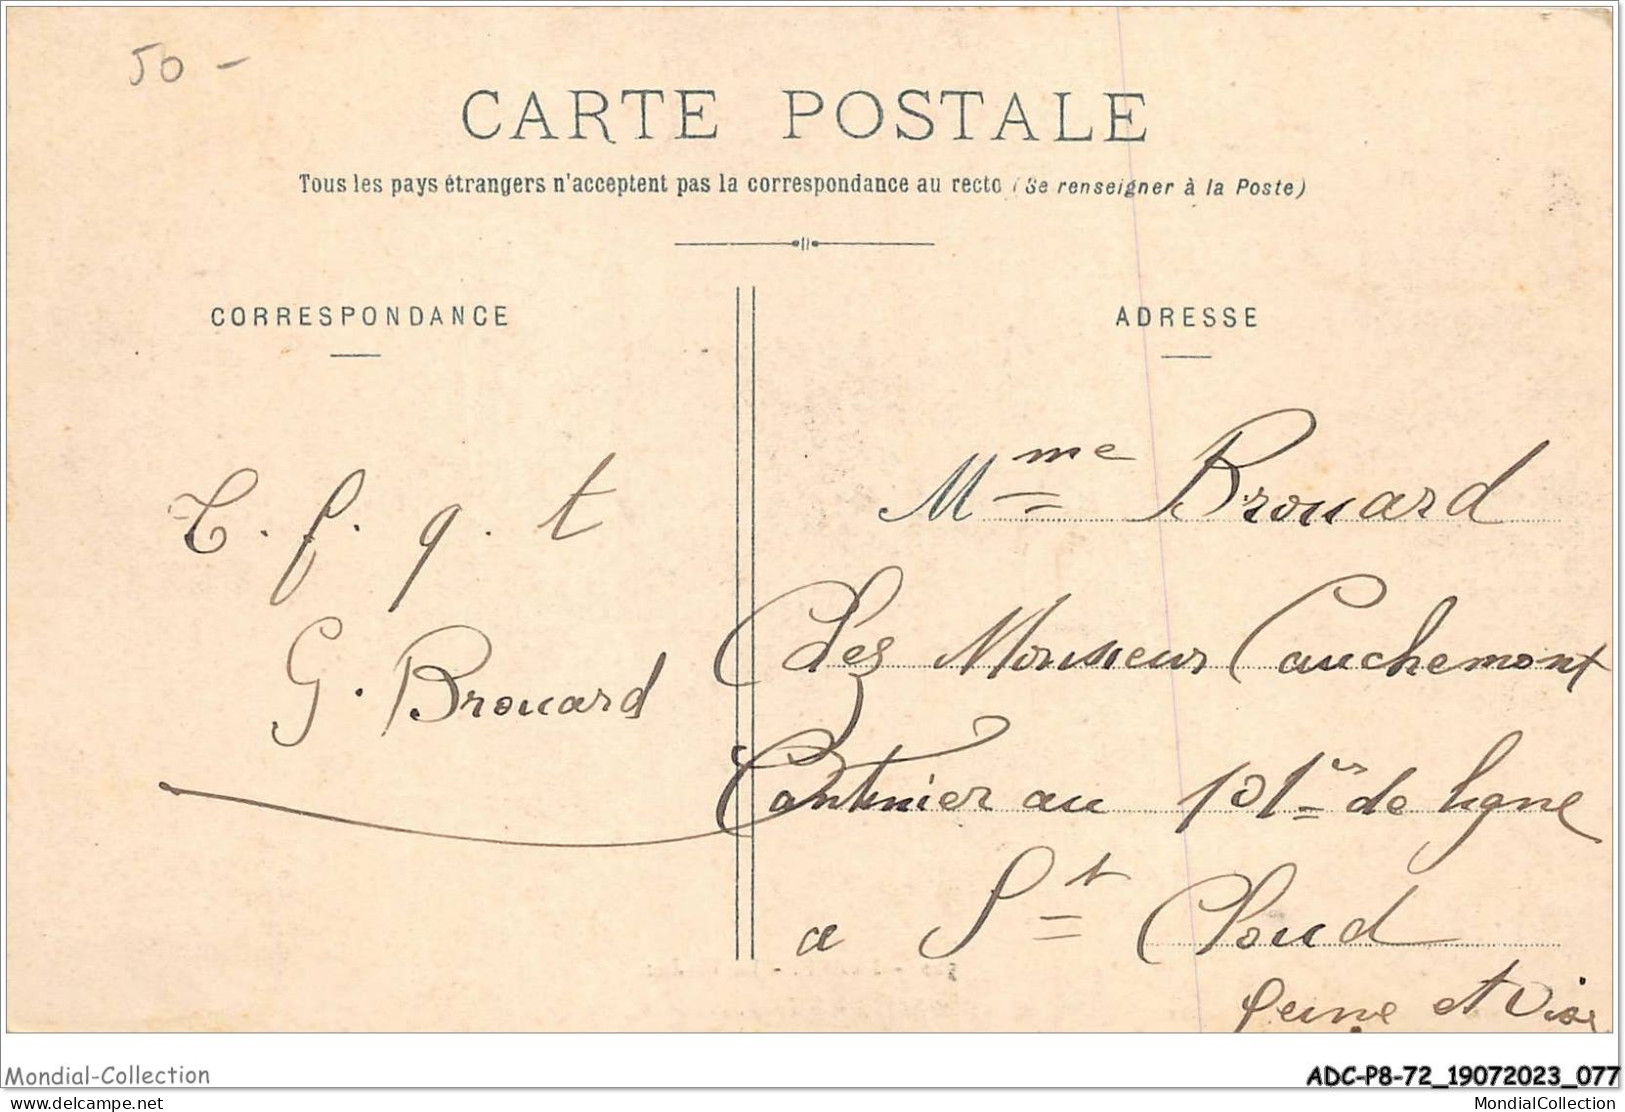 50 -
CARTE POSTALE
Tous les pays étrangers n'acceptent pas la correspondance au recto (Se renseigner à la Poste)
CORRESPONDANCE
T. f. q. t
G. Brouard
ADRESSE
Mme Brouard
Chez Monsieur Cauchemont
Cantinier au 101e de ligne
a St Cloud
Seine et Oise
Mondial-Collection
ADC-P8-72_19072023_077
delcampe.net
MondialCollection